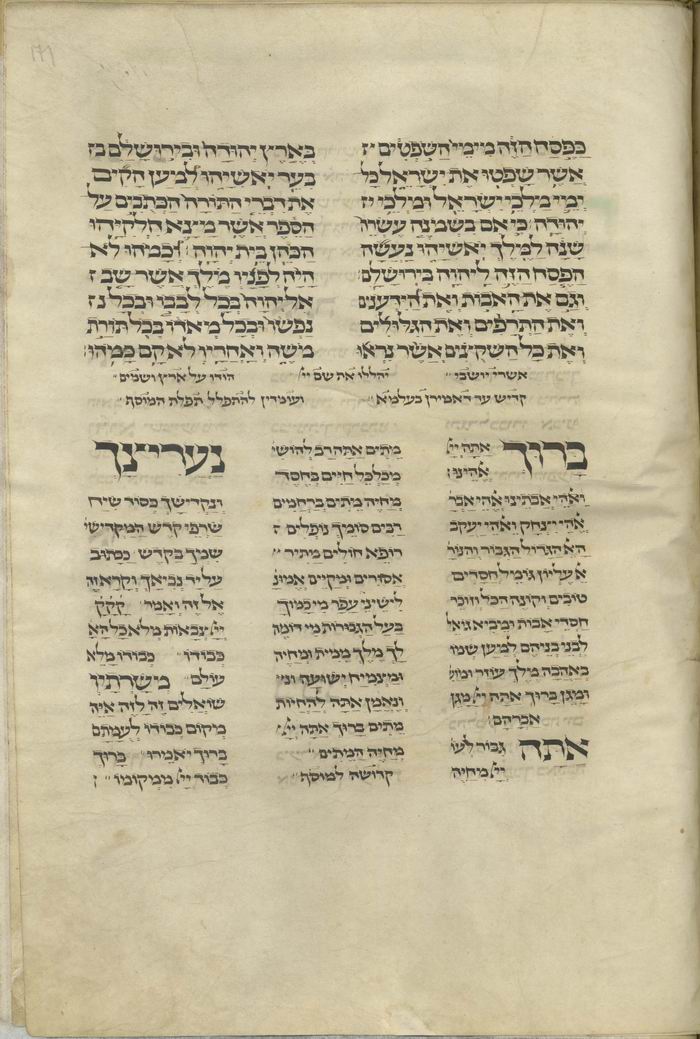 כפסח הזה מימי השפטים
אשר שפטו את ישראל וכל
ימי מלכי ישראל ומלכי
יהודה כי אם בשמנה עשרה
שנה למלך יאשיהו נעשה
הפסח הזה ליהוה בירושלם
וגם את האבות ואת הידענים
ואת התרפים ואת הגלולים
ואת כל השקוצים אשר נראו
בארץ יהודה ובירושלם
בער יאשיהו למען הקים
את דברי התורה הכתבים על
הספר אשר מצא חלקיהו
הכהן בית יהוה וכמהו לא
היה לפניו מלך אשר שב
אל יהוה בכל לבבו ובכל
נפשו ובכל מאדו ככל תורת
משה ואחריו לא קם כמהו
אשרי יושבי יהללו את שם ייי הודו על ארץ ושמים
קדיש עד דאמירן בעלמא ועומדין להתפלל תפלת המוסף
ברוך אתה ייי
אהינו
ואהי אבתינו אהי אבר
אהי יצחק ואהי יעקב
הא הגדול הגבור והנור
א עליון גומל חסדים
טובים וקונה הכל וזוכר
חסדי אבות ומביא גואל
לבני בניהם למען שמו
באהבה מלך עוזר ומו
ומגן ברוך אתה ייי מגן
אברהם
אתה גבור לעו
ייי מחיה
מתים אתה רב להושי
מכלכל חיים בחסד
מחיה מתים ברחמים
רבים סומיך נופלים
רופא חולים מתיר
אסורים ומקיים אמונ
לישיני עפר מי כמוך
בעל הגבורות מי דומה
לך מלך ממית ומחיה
ומצמיח ישועה וני
ונאמן אתה להחיות
מתים ברוך אתה ייי
מחיה המתים
קדושה למוסף
נעריצך
ונקדישך כסוד שיח
שרפי קדש המקדישי
שמיך בקדש ככתוב
על יד נביאך וקרא זה
אל זה ואמר קקק
ייי צבאות מלא כל הא
כבודו כבודו מלא
עולם משרתיו
שואלים זה לזה איה
מקום כבודו לעמתם
ברוך יאמרו ברוך
כבוד ייי ממקומו